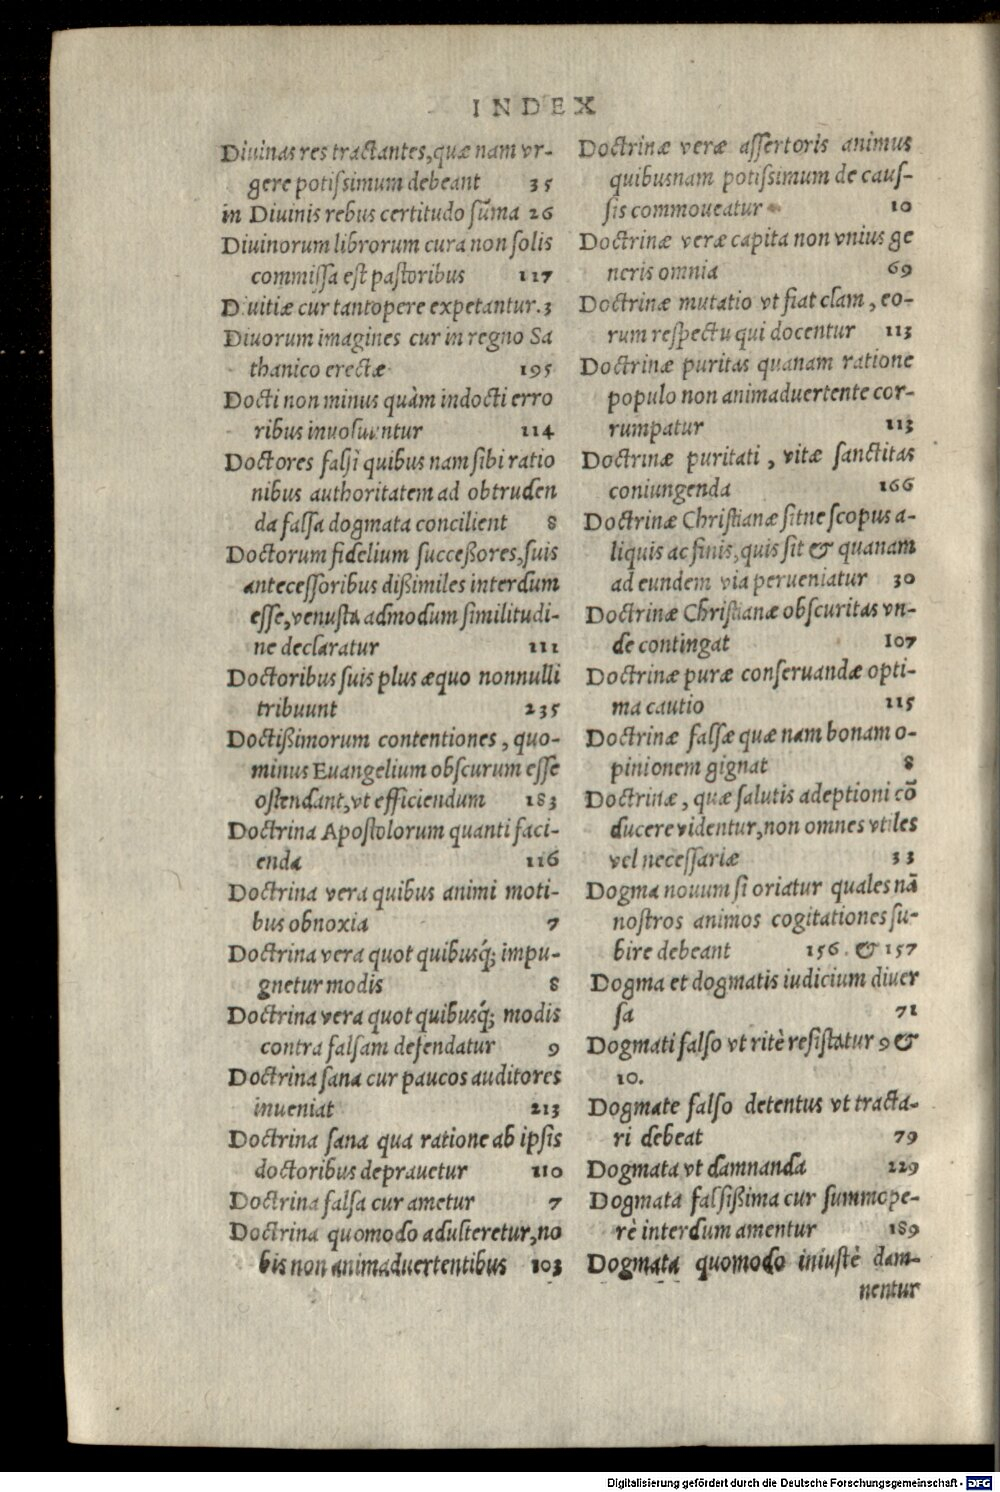 INDEX
Diuinas res tractantes,quæ nam vr-
gere potißimum debeant 35
in Diuinis rebus certitudo sūma 26
Diuinorum librorum cura non solis
commissa est pastoribus 117
Diuitiæ cur tantopere expetantur.3
Diuorum imagines cur in regno Sa
thanico erectæ 195
Docti non minus quàm indocti erro
ribus inuoluuntur 114
Doctores falsi quibus nam sibi ratio
nibus authoritatem ad obtruden
da falsa dogmata concilient 8
Doctorum fidelium succeßores,suis
antecessoribus dißimiles interdum
esse,venusta admodum similitudi-
ne declaratur 111
Doctoribus suis plus æquo nonnulli
tribuunt 235
Doctißimorum contentiones, quo-
minus Euangelium obscurum esse
ostendant,vt efficiendum 183
Doctrina Apostolorum quanti faci-
enda 116
Doctrina vera quibus animi moti-
bus obnoxia 7
Doctrina vera quot quibusq́; impu-
gnetur modis 8
Doctrina vera quot quibusq́; modis
contra falsam defendatur 9
Doctrina sana cur paucos auditores
inueniat 213
Doctrina sana qua ratione ab ipsis
doctoribus deprauetur 110
Doctrina falsa cur ametur 7
Doctrina quomodo adulteretur,no
bis non animaduertentibus 103
Doctrinæ veræ assertoris animus
quibusnam potißimum de caus-
sis commoueatur 10
Doctrinæ veræ capita non vnius ge
neris omnia 69
Doctrinæ mutatio vt fiat clam, eo-
rum respectu qui docentur 113
Doctrinæ puritas quanam ratione
populo non animaduertente cor-
rumpatur 113
Doctrinæ puritati, vitæ sanctitas
coniungenda 166
Doctrinæ Christianæ sitne scopus a-
liquis ac finis,quis sit & quanam
ad eundem via perueniatur 30
Doctrinæ Christianæ obscuritas vn-
de contingat 107
Doctrinæ puræ conseruandæ opti-
ma cautio 115
Doctrinæ falsæ quæ nam bonam o-
pinionem gignat 8
Doctrinæ, quæ salutis adeptioni cō
ducere videntur,non omnes vtiles
vel necessariæ 33
Dogma nouum si oriatur quales nā
nostros animos cogitationes su-
bire debeant 156. & 157
Dogma et dogmatis iudicium diuer
sa 71
Dogmati falso vt ritè resistatur 9 &
10.
Dogmate falso detentus vt tracta-
ri debeat 79
Dogmata vt damnanda 129
Dogmata falsißima cur summope-
rè interdum amentur 189
Dogmata quomodo iniustè dam-
nentur
Digitalisierung gefördert durch die Deutsche Forschungsgemeinschaft - DFG